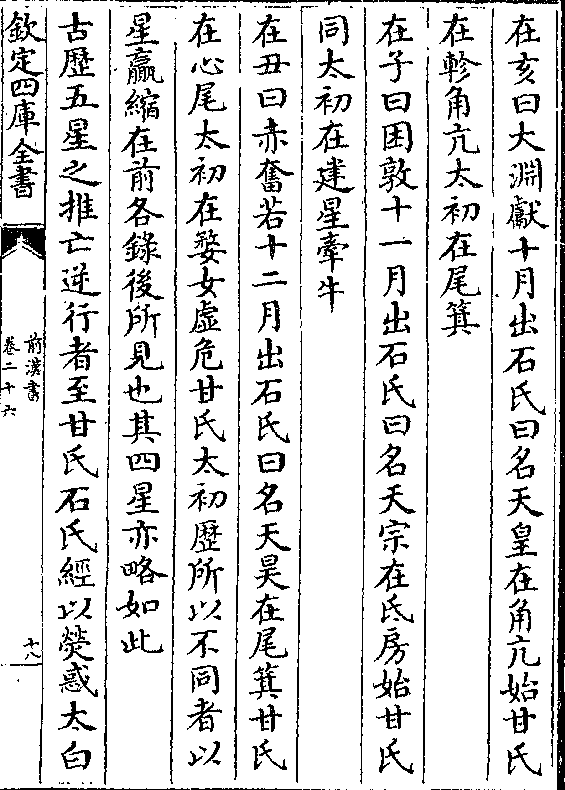 在亥曰大淵獻十月出石氏曰名天皇在角亢始甘氏
在軫角亢太初在尾箕
在子曰困敦十一月出石氏曰名天宗在氐房始甘氏
同太初在建星牽牛
在丑曰赤奮若十二月出石氏曰名天昊在尾箕甘氏
在心尾太初在婺女虛危甘氏太初歷所以不同者以
星贏縮在前各錄後所見也其四星亦略如此
古歷五星之推亡逆行者至甘氏石氏經以熒惑太白
欽定四庫全書
前漢書
卷二十六
十八